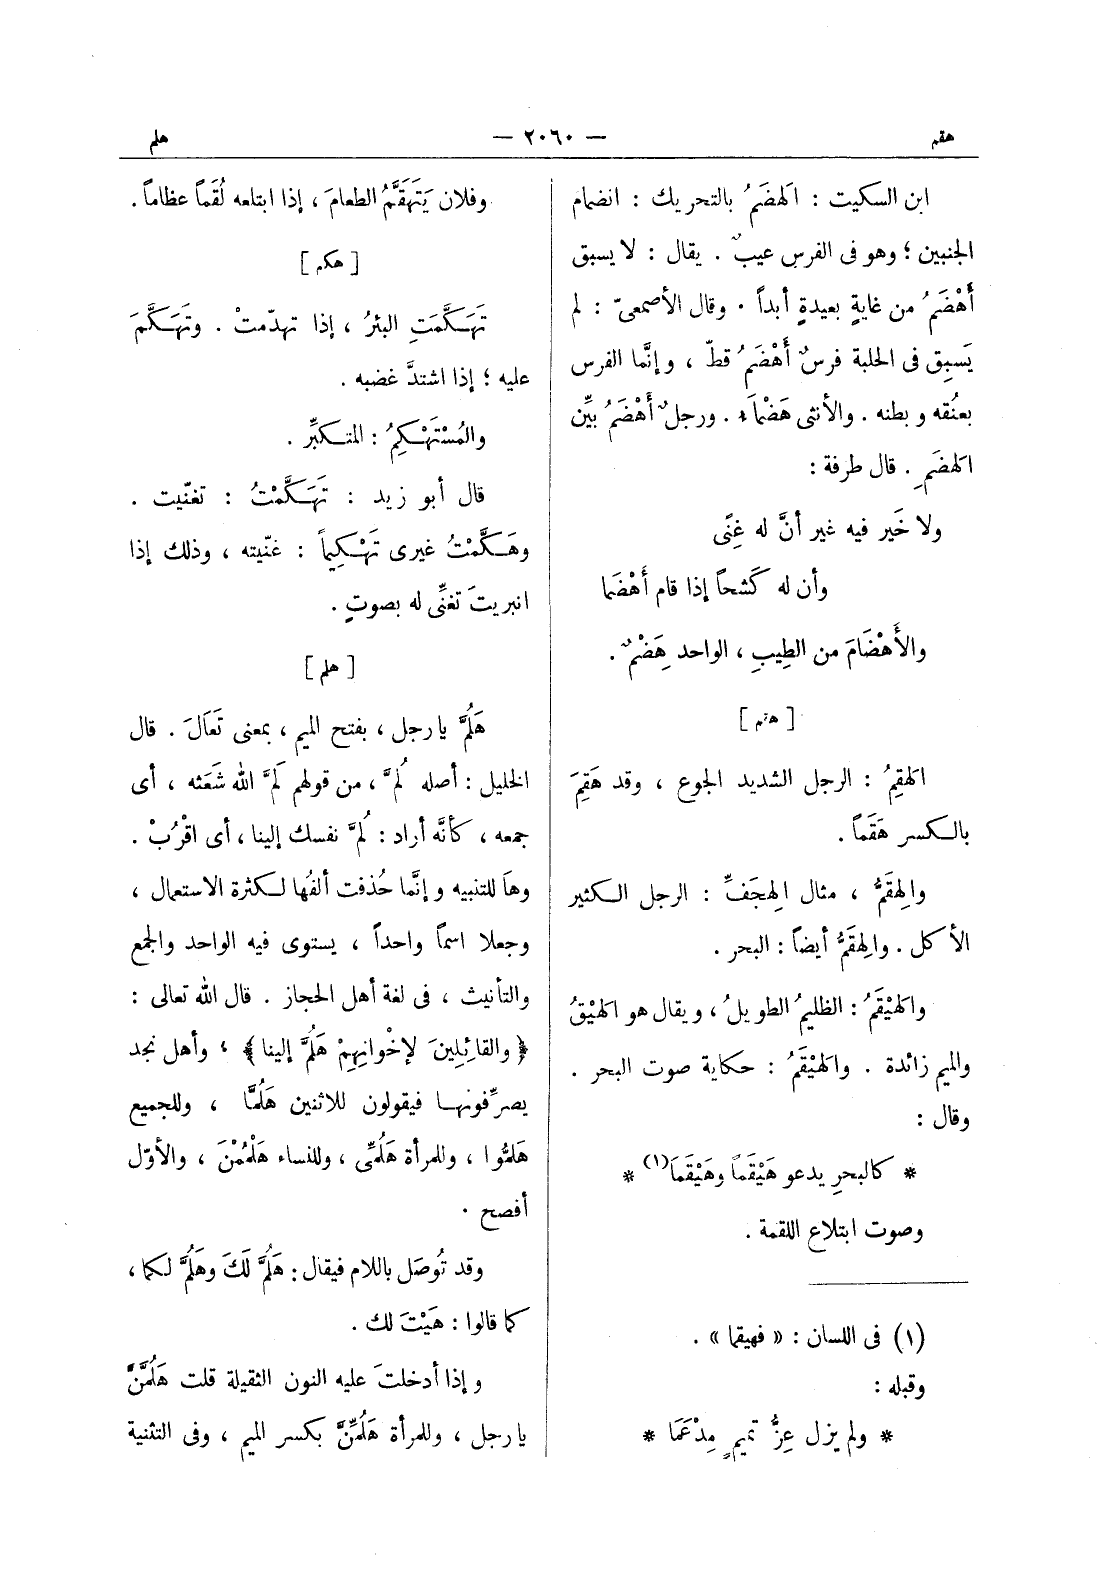 هقم — ٢٠٦٠ — هلم
ابن السكيت : الهَضَمُ بالتحريك : انضمام
الجنبين ؛ وهو فى الفرس عيبٌ . يقال : لا يسبق
أَهْضَمُ من غايةٍ بعيدةٍ أبداً . وقال الأصمعىّ : لم
يَسبِق فى الحلبة فرسٌ أَهْضَمُ قطّ ، وإنَّما الفرس
بعنُقه وبطنه . والأنثى هَضْماَء . ورجلٌ أَهْضَمُ بيِّن
الهضَمِ . قال طرفة :
ولا خَير فيه غير أنَّ له غِنًى
وأن له كَشحاً إذا قام أَهْضَما
والأَهْضَامَ من الطِيبِ ، الواحد هِضْمٌ .
[ هقم ]
الهَقِمُ : الرجل الشديد الجوع ، وقد هَقِمَ
بالكسر هَقَماً .
والِهقَمُّ ، مثال الِهجَفِّ : الرجل الكثير
الأكل . والِهقَمُّ أيضاً : البحر .
والهَيْقَمُ : الظليمُ الطويلُ ، ويقال هو الهَيْقُ
والميم زائدة . والهَيْقَمُ : حكاية صوت البحر .
وقال :
* كالبحرِ يدعو هَيْقَماً وهَيْقَمَا (١) *
وصوت ابتلاع اللقمة .
(١) فى اللسان : « فهيقما » .
وقبله :
* ولم يزل عِزُّ تميمٍ مِدْعَمَا *
وفلان يَتَهَقَّمُ الطعامَ ، إذا ابتلعه لُقَماً عظاماً .
[ هكم ]
تَهَكَّمَتِ البئرُ ، إذا تهدّمتْ . وتَهَكَّمَ
عليه ؛ إذا اشتدَّ غضبه .
والمُسْتَهْكِمُ : المتكبِّر .
قال أبو زيد : تَهَكَّمْتُ : تغنّيت .
وهَكَّمْتُ غيرى تَهْكِيماً : غنّيته ، وذلك إذا
انبريتَ تغنِّى له بصوتٍ .
[ هلم ]
هَلُمَّ يا رجل ، بفتح الميم ، بمعنى تَعَالَ . قال
الخليل : أصله لُمَّ ، من قولهم لَمَّ الله شَعَثه ، أى
جمعه ، كأنَّه أراد : لُمَّ نفسك إلينا ، أى اقْرُبْ .
وهَا للتنبيه وإنَّما حُذفت ألفُها لكثرة الاستعمال ،
وجعلا اسماً واحداً ، يستوى فيه الواحد والجمع
والتأنيث ، فى لغة أهل الحجاز . قال الله تعالى :
﴿ والقَائِلِينَ لإخْوانِهِمْ هَلُمَّ إلينا ﴾ ، وأهل نجد
يصرِّفونها فيقولون للاثنين هَلُمَّا ، وللجميع
هَلُمُّوا ، وللمرأة هَلُمِّى ، وللنساء هَلْمُمْنَ ، والأوّل
أفصح .
وقد تُوصَل باللام فيقال : هَلُمَّ لَكَ وهَلُمَّ لكما ،
كما قالوا : هَيْتَ لك .
وإذا أدخلتَ عليه النون الثقيلة قلت هَلُمَّنَّ
يا رجل ، وللمرأة هَلُمِّنَّ بكسر الميم ، وفى التثنية